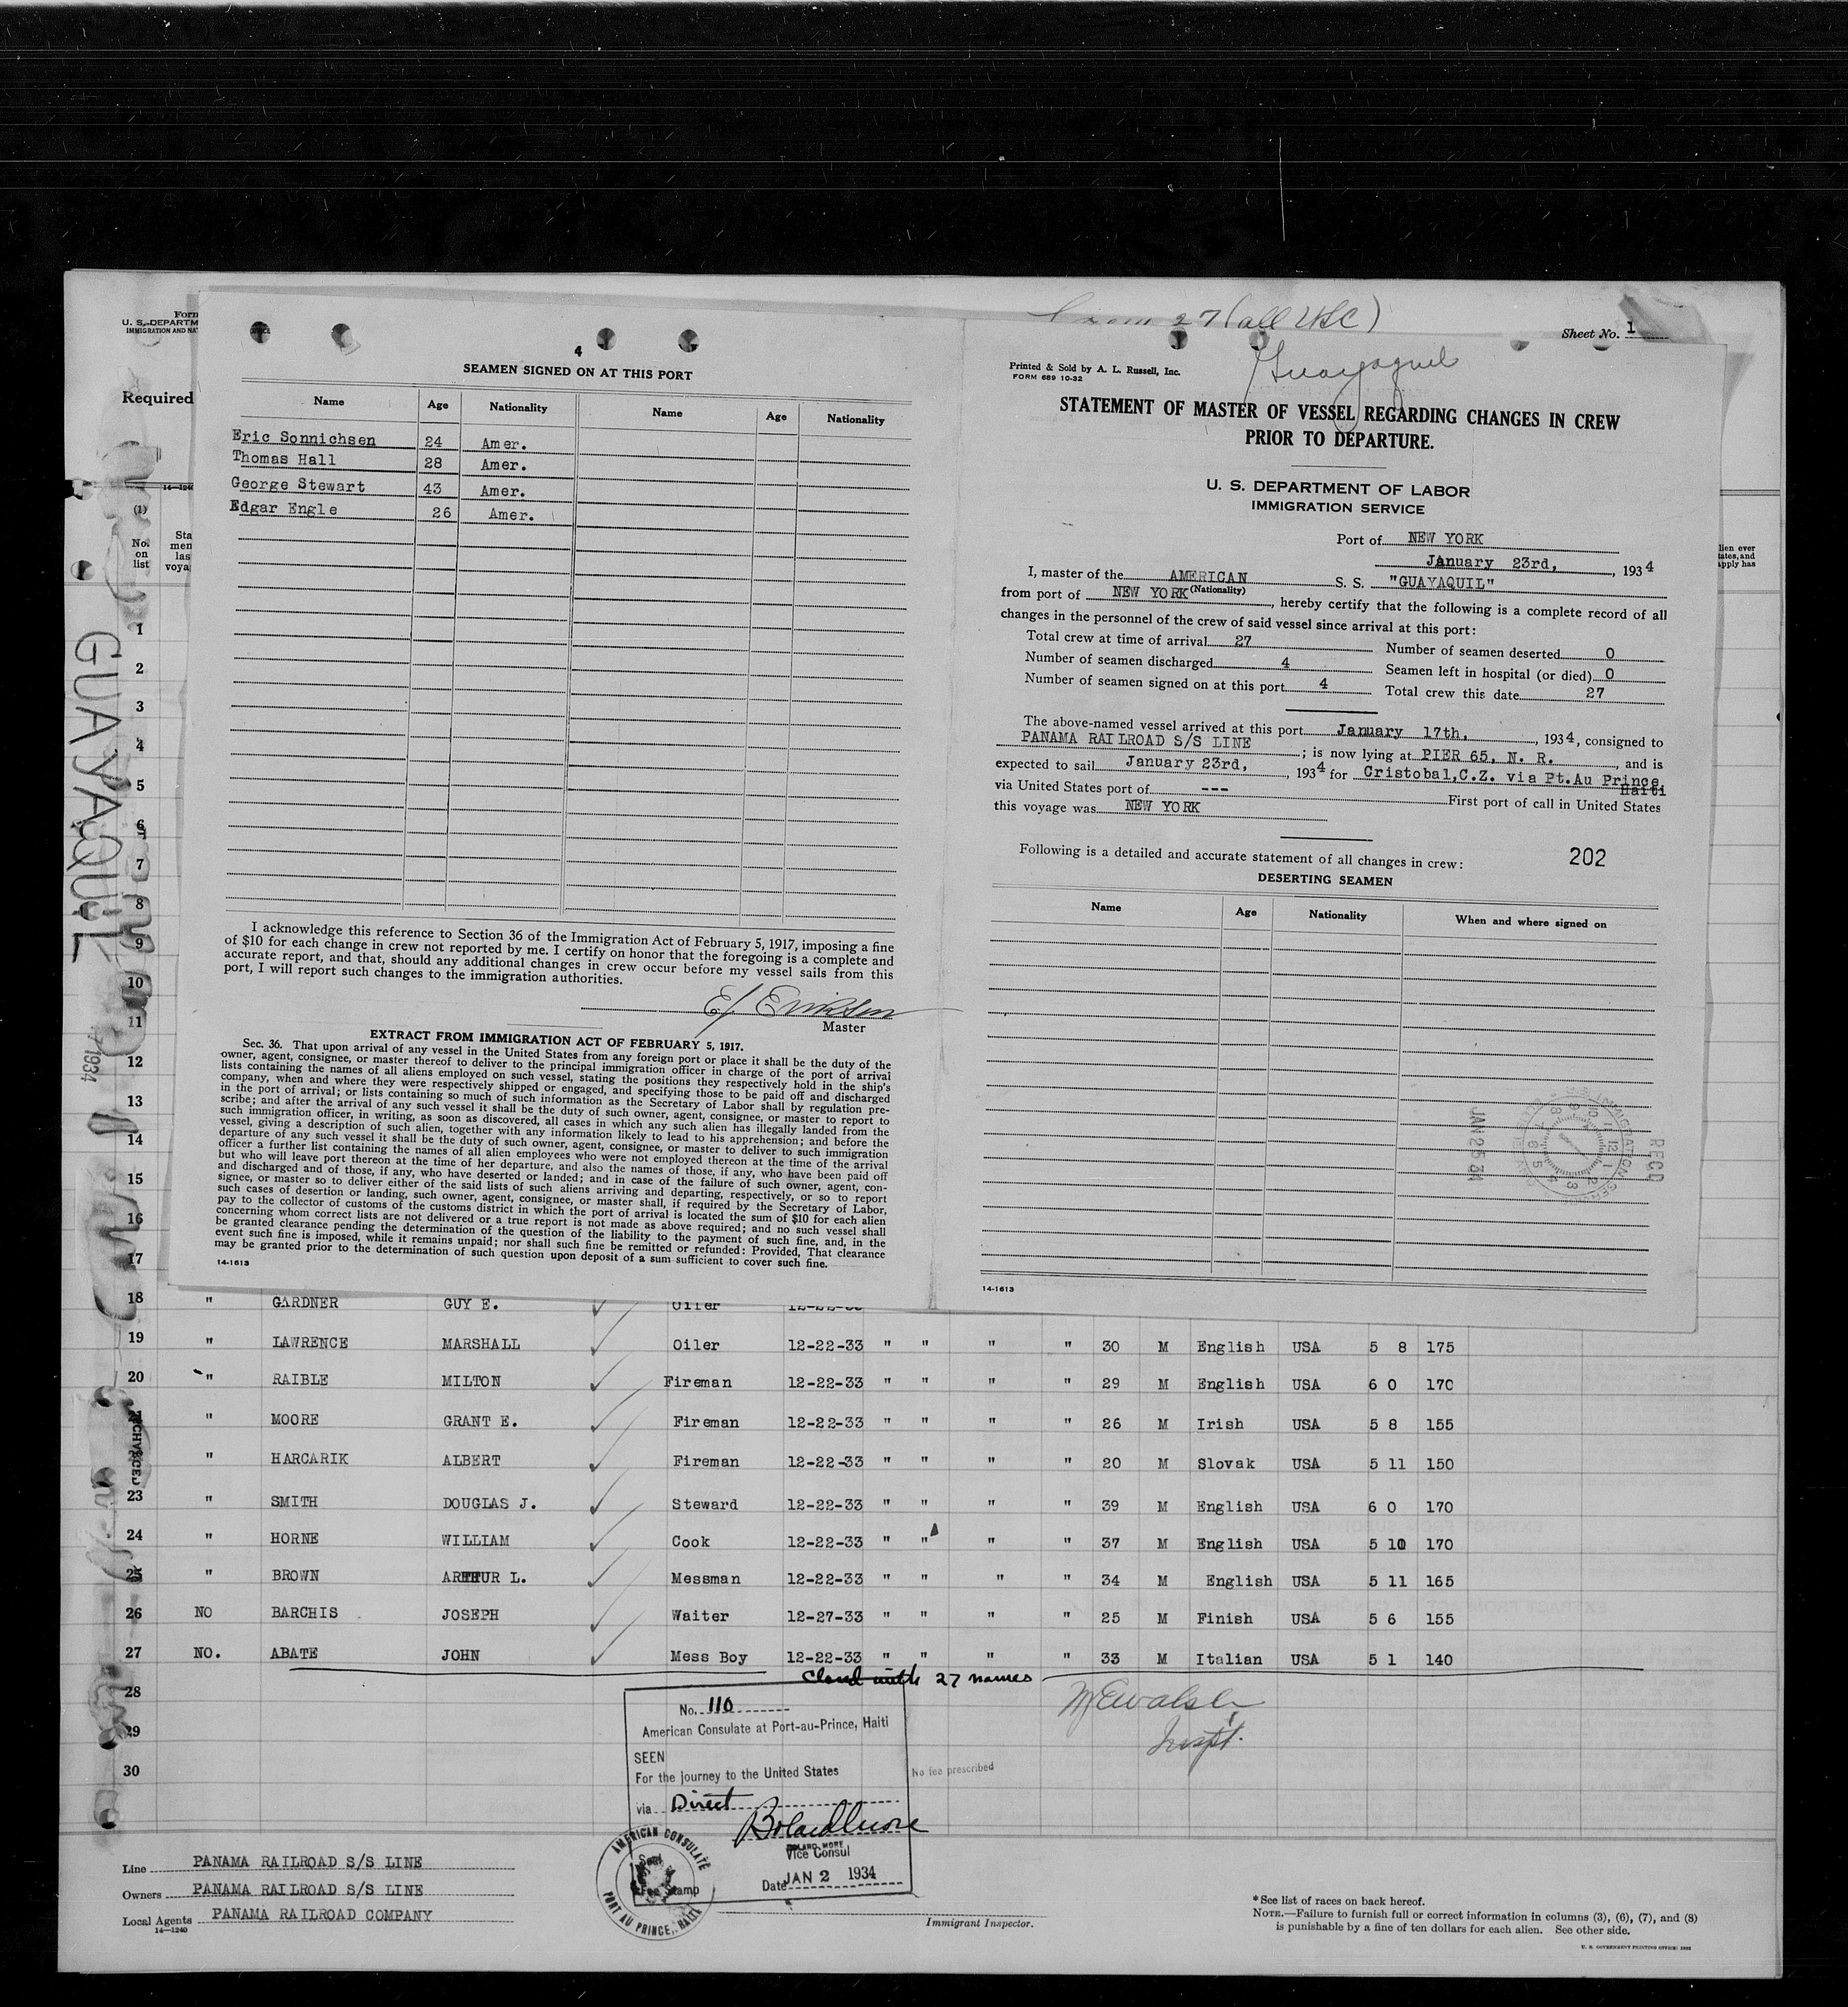 Form
U. S. DEPARTM
IMMIGRATION AND NA
Required
14—1240
(1)
No.
on
list
Sta
men
las
voya
GUAYAQUIL
1934
4
SEAMEN SIGNED ON AT THIS PORT
Name Age Nationality Name Age Nationality
Eric Sonnichsen 24 Amer.
Thomas Hall 28 Amer.
George Stewart 43 Amer.
Edgar Engle 26 Amer.
I acknowledge this reference to Section 36 of the Immigration Act of February 5, 1917, imposing a fine
of $10 for each change in crew not reported by me. I certify on honor that the foregoing is a complete and
accurate report, and that, should any additional changes in crew occur before my vessel sails from this
port, I will report such changes to the immigration authorities.
Master
EXTRACT FROM IMMIGRATION ACT OF FEBRUARY 5, 1917.
Sec. 36. That upon arrival of any vessel in the United States from any foreign port or place it shall be the duty of the
owner, agent, consignee, or master thereof to deliver to the principal immigration officer in charge of the port of arrival
lists containing the names of all aliens employed on such vessel, stating the positions they respectively hold in the ship's
company, when and where they were respectively shipped or engaged, and specifying those to be paid off and discharged
in the port of arrival; or lists containing so much of such information as the Secretary of Labor shall by regulation pre-
scribe; and after the arrival of any such vessel it shall be the duty of such owner, agent, consignee, or master to report to
such immigration officer, in writing, as soon as discovered, all cases in which any such alien has illegally landed from the
vessel, giving a description of such alien, together with any information likely to lead to his apprehension; and before the
departure of any such vessel it shall be the duty of such owner, agent, consignee, or master to deliver to such immigration
officer a further list containing the names of all alien employees who were not employed thereon at the time of the arrival
but who will leave port thereon at the time of her departure, and also the names of those, if any, who have been paid off
and discharged and of those, if any, who have deserted or landed; and in case of the failure of such owner, agent, con-
signee, or master so to deliver either of the said lists of such aliens arriving and departing, respectively, or so to report
such cases of desertion or landing, such owner, agent, consignee, or master shall, if required by the Secretary of Labor,
pay to the collector of customs of the customs district in which the port of arrival is located the sum of $10 for each alien
concerning whom correct lists are not delivered or a true report is not made as above required; and no such vessel shall
be granted clearance pending the determination of the question of the liability to the payment of such fine, and, in the
event such fine is imposed, while it remains unpaid; nor shall such fine be remitted or refunded: Provided, That clearance
may be granted prior to the determination of such question upon deposit of a sum sufficient to cover such fine.
14-1613
27 (all USC)
Sheet No. 1
Guayaquil
Printed & Sold by A. L. Russell, Inc.
FORM 689 10-32
STATEMENT OF MASTER OF VESSEL REGARDING CHANGES IN CREW
PRIOR TO DEPARTURE.
U. S. DEPARTMENT OF LABOR
IMMIGRATION SERVICE
Port of NEW YORK
January 23rd, , 1934
I, master of the AMERICAN S. S. "GUAYAQUIL"
(Nationality)
from port of NEW YORK , hereby certify that the following is a complete record of all
changes in the personnel of the crew of said vessel since arrival at this port:
Total crew at time of arrival 27 Number of seamen deserted 0
Number of seamen discharged 4 Seamen left in hospital (or died) 0
Number of seamen signed on at this port 4 Total crew this date 27
The above-named vessel arrived at this port January 17th. , 1934, consigned to
PANAMA RAILROAD S/S LINE ; is now lying at PIER 65, N. R. , and is
expected to sail January 23rd, , 1934 for Cristobal,C.Z. via Pt.Au Prince,
Haiti
via United States port of --- First port of call in United States
this voyage was NEW YORK
Following is a detailed and accurate statement of all changes in crew: 202
DESERTING SEAMEN
Name Age Nationality When and where signed on
RECD
JAN 25 34
14-1613
lien ever
tates, and
apply has
1
2
3
4
5
6
7
8
9
10
11
12
13
14
15
16
17
18 " GARDNER GUY E. Oiler 12-22-33
19 " LAWRENCE MARSHALL Oiler 12-22-33 " " " " 30 M English USA 5 8 175
20 " RAIBLE MILTON Fireman 12-22-33 " " " " 29 M English USA 6 0 170
21 " MOORE GRANT E. Fireman 12-22-33 " " " " 26 M Irish USA 5 8 155
" HARCARIK ALBERT Fireman 12-22-33 " " " " 20 M Slovak USA 5 11 150
23 " SMITH DOUGLAS J. Steward 12-22-33 " " " " 39 M English USA 6 0 170
24 " HORNE WILLIAM Cook 12-22-33 " " " " 37 M English USA 5 10 170
25 " BROWN ARTHUR L. Messman 12-22-33 " " " " 34 M English USA 5 11 165
26 NO BARCHIS JOSEPH Waiter 12-27-33 " " " " 25 M Finish USA 5 6 155
27 NO. ABATE JOHN Mess Boy 12-22-33 " " " " 33 M Italian USA 5 1 140
Closed with 27 names
28
29
30
Inspt.
No. 110
American Consulate at Port-au-Prince, Haiti
SEEN
For the journey to the United States
No fee prescribed
via Direct
Vice Consul
Date JAN 2 1934
AMERICAN CONSULATE
PORT AU PRINCE, HAITI
Fee Stamp
Line PANAMA RAILROAD S/S LINE
Owners PANAMA RAILROAD S/S LINE
Local Agents PANAMA RAILROAD COMPANY
14—1240
Immigrant Inspector.
*See list of races on back hereof.
NOTE.—Failure to furnish full or correct information in columns (3), (6), (7), and (8)
is punishable by a fine of ten dollars for each alien. See other side.